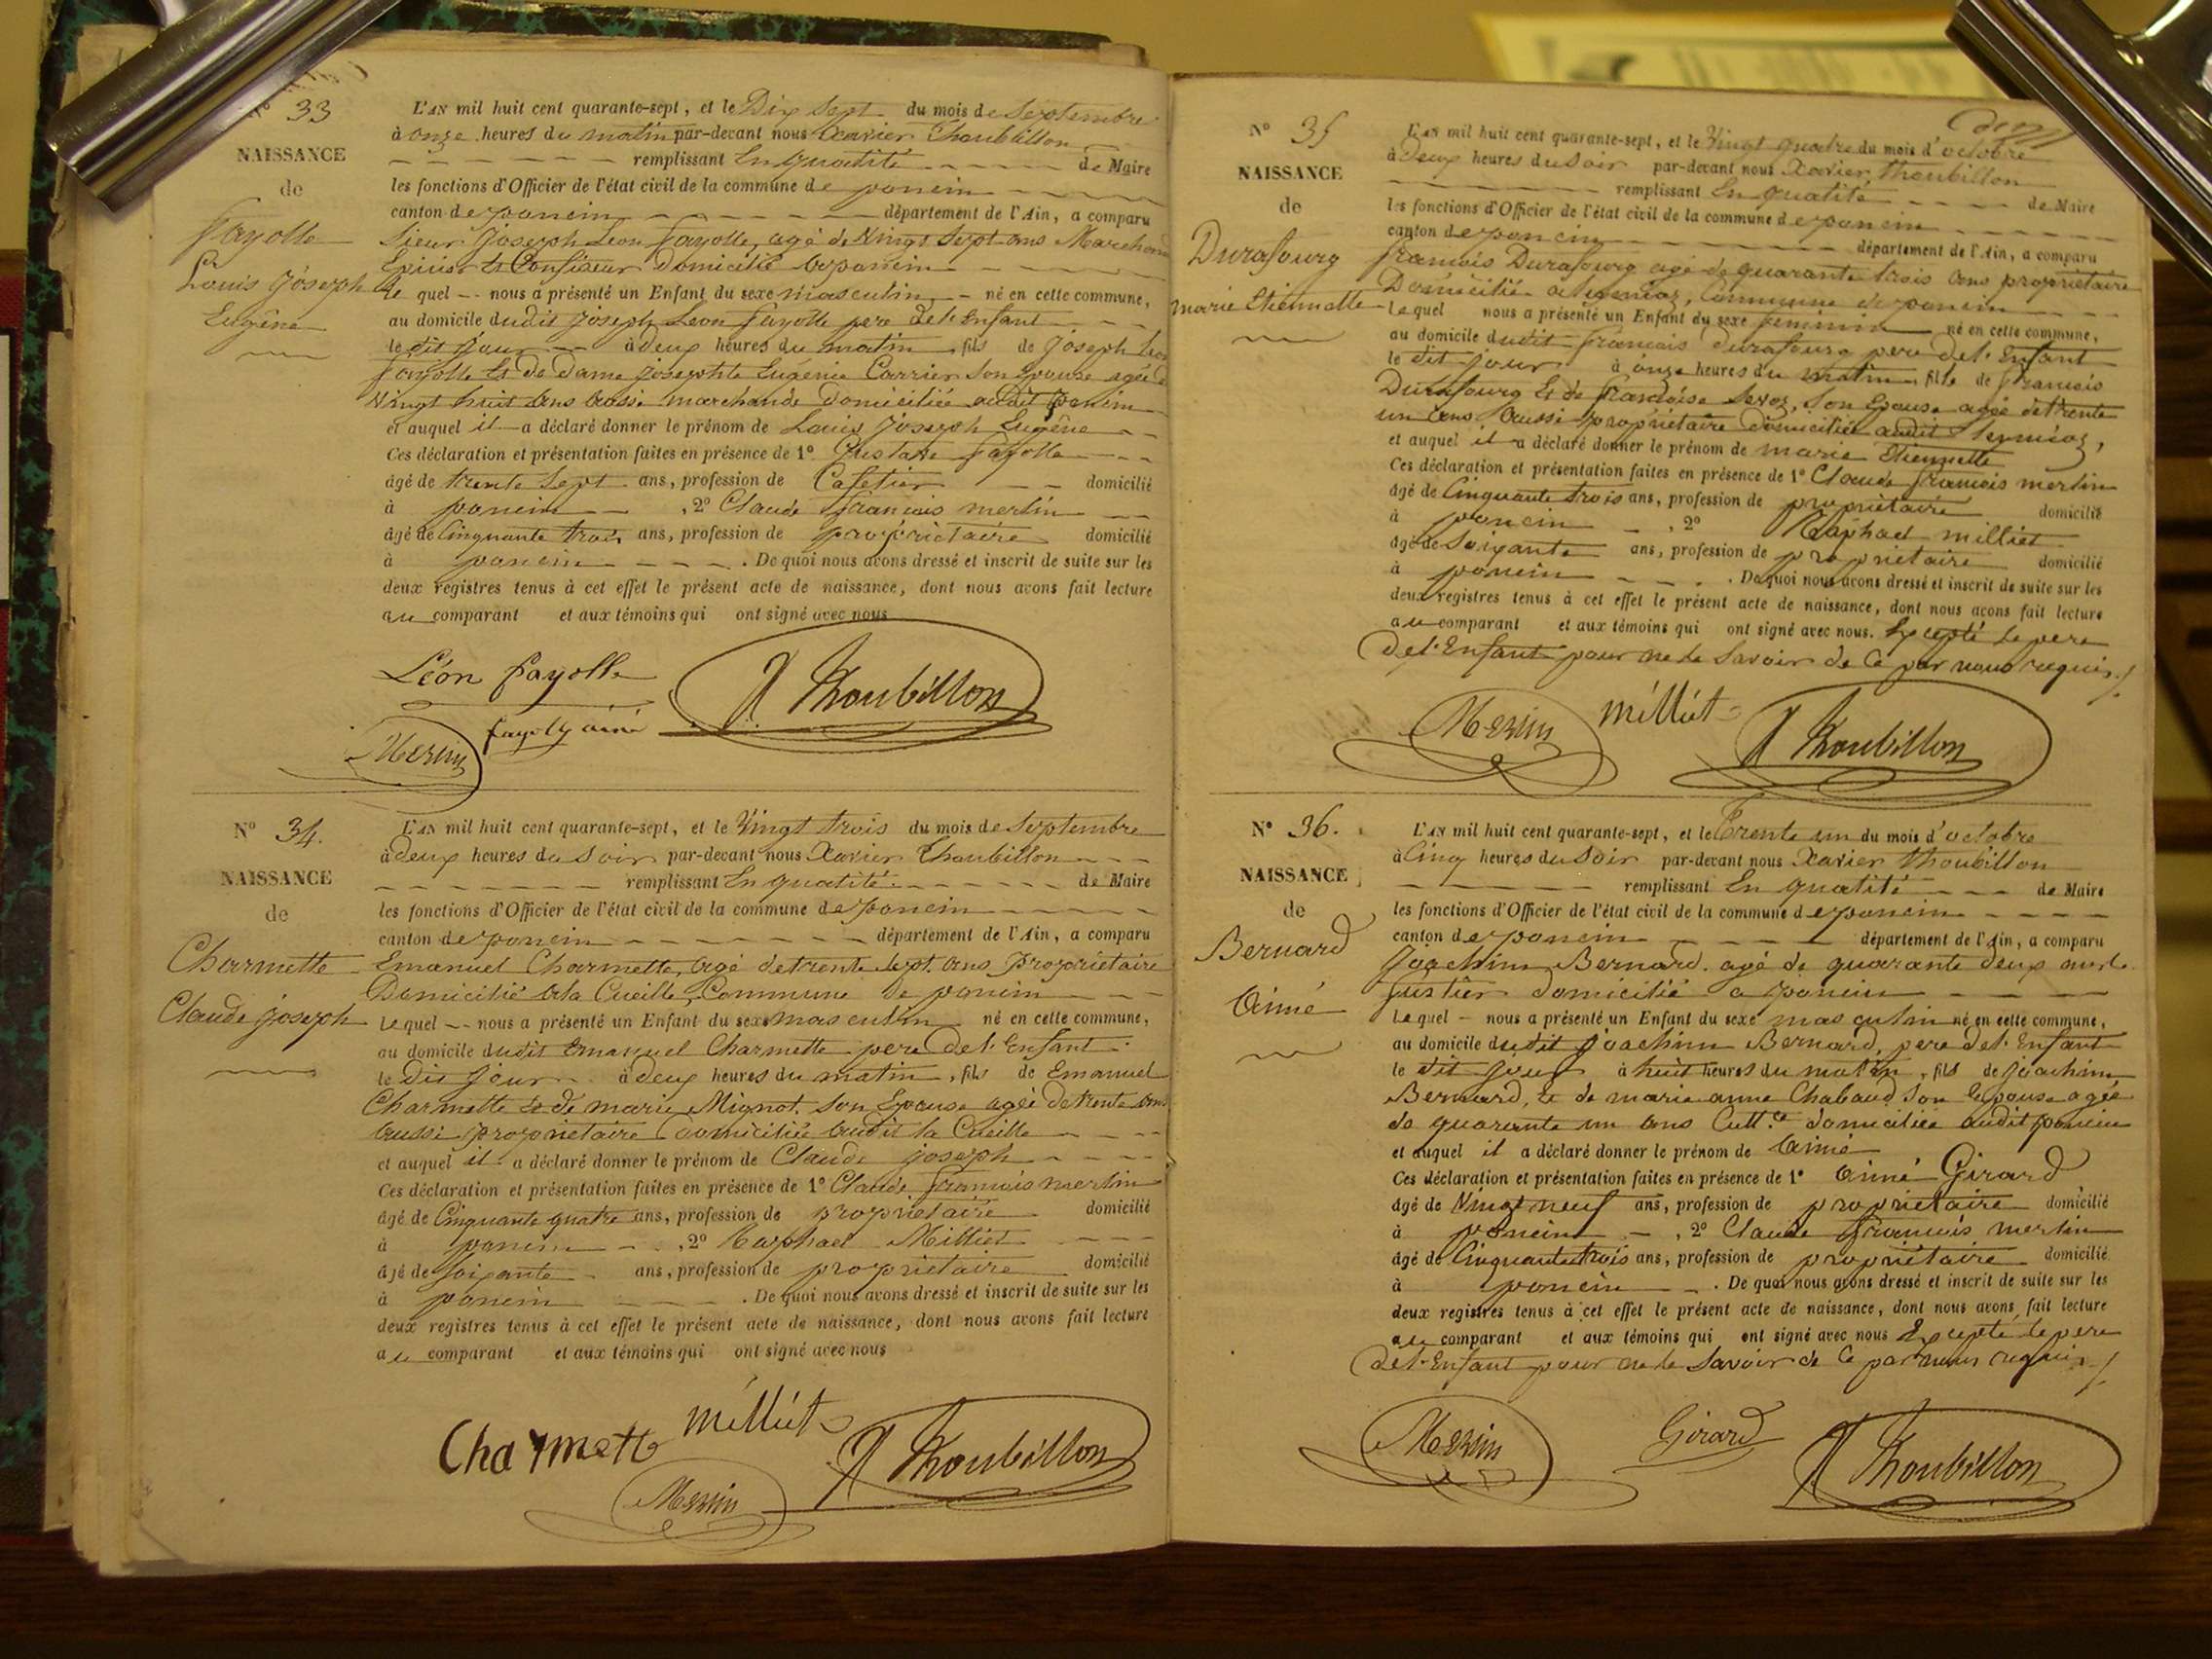 N° 33
NAISSANCE
de
Fayolle
Louis Joseph
Eugène
L'AN mil huit cent quarante-sept, et le Dix Sept du mois de Septembre
à onze heures du matin par-devant nous Xavier Thoubillon
remplissant En qualité de Maire
les fonctions d'Officier de l'état civil de la commune de poncin
canton de poncin département de l'Ain, a comparu
Sieur Joseph Leon Fayolle, agé de Vingt Sept ans Marchand
Epicier et Confiseur Domicilié a poncin
le quel nous a présenté un Enfant du sexe masculin né en cette commune,
au domicile dudit Joseph Leon Fayolle pere de l'Enfant
le dit jour à deux heures du matin, fils de Joseph Leon
Fayolle et de Dame Josephte Eugénie Carrier son Epouse agée de
Vingt huit ans aussi marchande domiciliée audit poncin
et auquel il a déclaré donner le prénom de Louis Joseph Eugène
Ces déclaration et présentation faites en présence de 1° Gustave Fayolle
âgé de trente Sept ans, profession de Cafetier domicilié
à poncin , 2° Claude François merlin
âgé de Cinquante trois ans, profession de propriétaire domicilié
à poncin . De quoi nous avons dressé et inscrit de suite sur les
deux registres tenus à cet effet le présent acte de naissance, dont nous avons fait lecture
au comparant et aux témoins qui ont signé avec nous
Léon fayolle
X Thoubillon
fayolle ainé
Merlin
N° 34.
NAISSANCE
de
Charmette
Claude joseph
L'AN mil huit cent quarante-sept, et le Vingt trois du mois de Septembre
à deux heures du Soir par-devant nous Xavier Thoubillon
remplissant En qualité de Maire
les fonctions d'Officier de l'état civil de la commune de poncin
canton de poncin département de l'Ain, a comparu
Emanuel Charmette, agé de trente Sept ans Propriétaire
Domicilié a la Cueille, Commune de poncin
Le quel nous a présenté un Enfant du sexe masculin né en cette commune,
au domicile dudit Emanuel Charmette pere de l'Enfant
le dit jour à deux heures du matin, fils de Emanuel
Charmette et de marie Mignot son Epouse agée de trente ans
aussi propriétaire domiciliée audit la Cueille
et auquel il a déclaré donner le prénom de Claude joseph
Ces déclaration et présentation faites en présence de 1° Claude François merlin
âgé de Cinquante quatre ans, profession de propriétaire domicilié
à poncin , 2° Raphael Milliet
âgé de Soixante ans, profession de propriétaire domicilié
à poncin . De quoi nous avons dressé et inscrit de suite sur les
deux registres tenus à cet effet le présent acte de naissance, dont nous avons fait lecture
au comparant et aux témoins qui ont signé avec nous
Charmette
milliet
X Thoubillon
Merlin
N° 35
NAISSANCE
de
Durafourg
marie Etiennette
L'AN mil huit cent quarante-sept, et le Vingt quatre du mois d'octobre
à Deux heures du Soir par-devant nous Xavier Thoubillon
remplissant En qualité de Maire
les fonctions d'Officier de l'état civil de la commune de poncin
canton de poncin département de l'Ain, a comparu
françois Durafourg agé de quarante trois ans propriétaire
Domicilié a Commune de poncin
Le quel nous a présenté un Enfant du sexe feminin né en cette commune,
au domicile dudit francois durafourg pere de l'Enfant
le dit jour à onze heures du matin, fille de francois
Durafourg Et de francoise Son Epouse agée de trente
un ans aussi propriétaire domiciliée audit
et auquel il a déclaré donner le prénom de marie Etiennette
Ces déclaration et présentation faites en présence de 1° Claude francois merlin
âgé de Cinquante trois ans, profession de propriétaire domicilié
à poncin , 2° Raphael milliet
âgé de Soixante ans, profession de propriétaire domicilié
à poncin . De quoi nous avons dressé et inscrit de suite sur les
deux registres tenus à cet effet le présent acte de naissance, dont nous avons fait lecture
au comparant et aux témoins qui ont signé avec nous. Excepté le pere
de l'Enfant pour ne le Savoir de Ce par nous requis ./.
Merlin
milliet
X Thoubillon
N° 36.
NAISSANCE
de
Bernard
Aimé
L'AN mil huit cent quarante-sept, et le Trente un du mois d'octobre
à Cinq heures du Soir par-devant nous Xavier Thoubillon
remplissant En qualité de Maire
les fonctions d'Officier de l'état civil de la commune de poncin
canton de poncin département de l'Ain, a comparu
Joachim Bernard. agé de quarante deux ans
domicilié a poncin
Le quel nous a présenté un Enfant du sexe masculin né en cette commune,
au domicile dudit Joachim Bernard, pere de l'Enfant
le dit jour à huit heures du matin, fils de joachim
Bernard, et de marie anne Chabaud Son Epouse agée
de quarante un ans Cult.ce domiciliée audit poncin
et auquel il a déclaré donner le prénom de Aimé
Ces déclaration et présentation faites en présence de 1° Aimé Girard
âgé de Vingt neuf ans, profession de propriétaire domicilié
à poncin , 2° Claude François merlin
âgé de Cinquante trois ans, profession de propriétaire domicilié
à poncin . De quoi nous avons dressé et inscrit de suite sur les
deux registres tenus à cet effet le présent acte de naissance, dont nous avons fait lecture
au comparant et aux témoins qui ont signé avec nous Excepté le pere
de l'Enfant pour ne le Savoir de Ce par nous requis ./.
Merlin
Girard
X Thoubillon